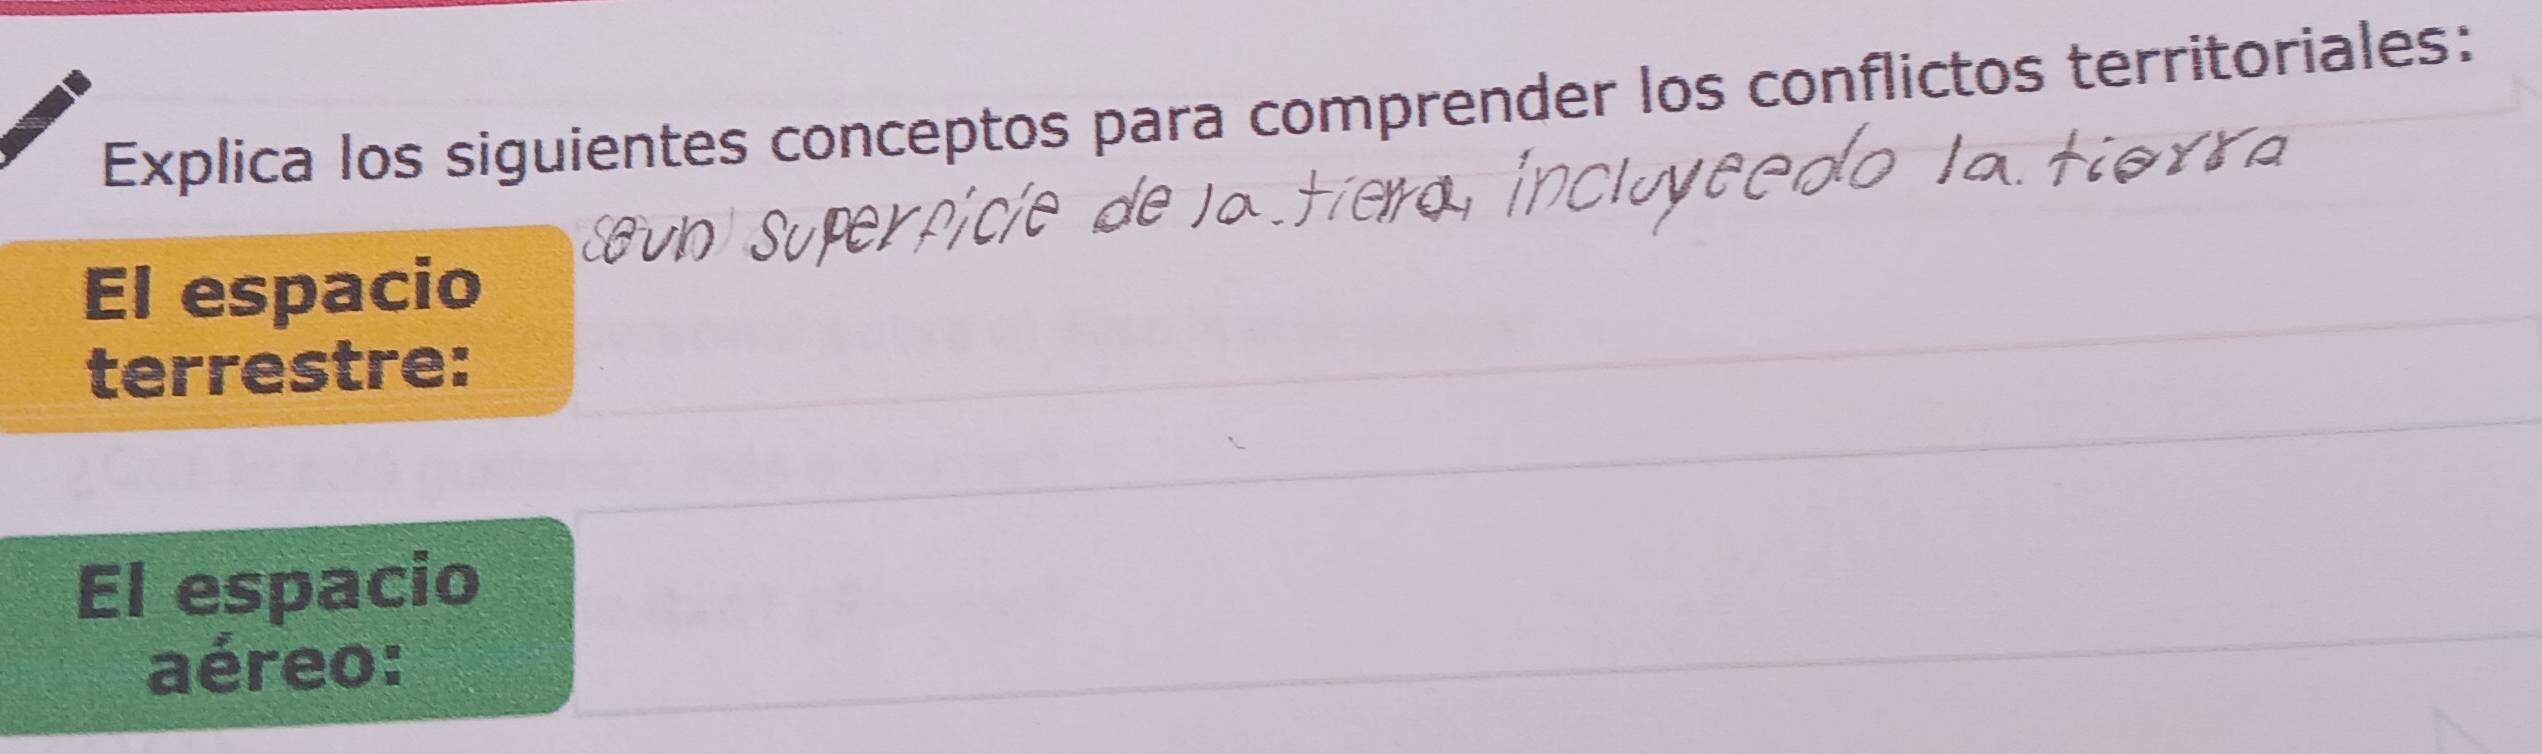 Explica los siguientes conceptos para comprender los conflictos territoriales:
superficie de la tierra, incluyeedo la tierra
El espacio
terrestre:
El espacio
aéreo: